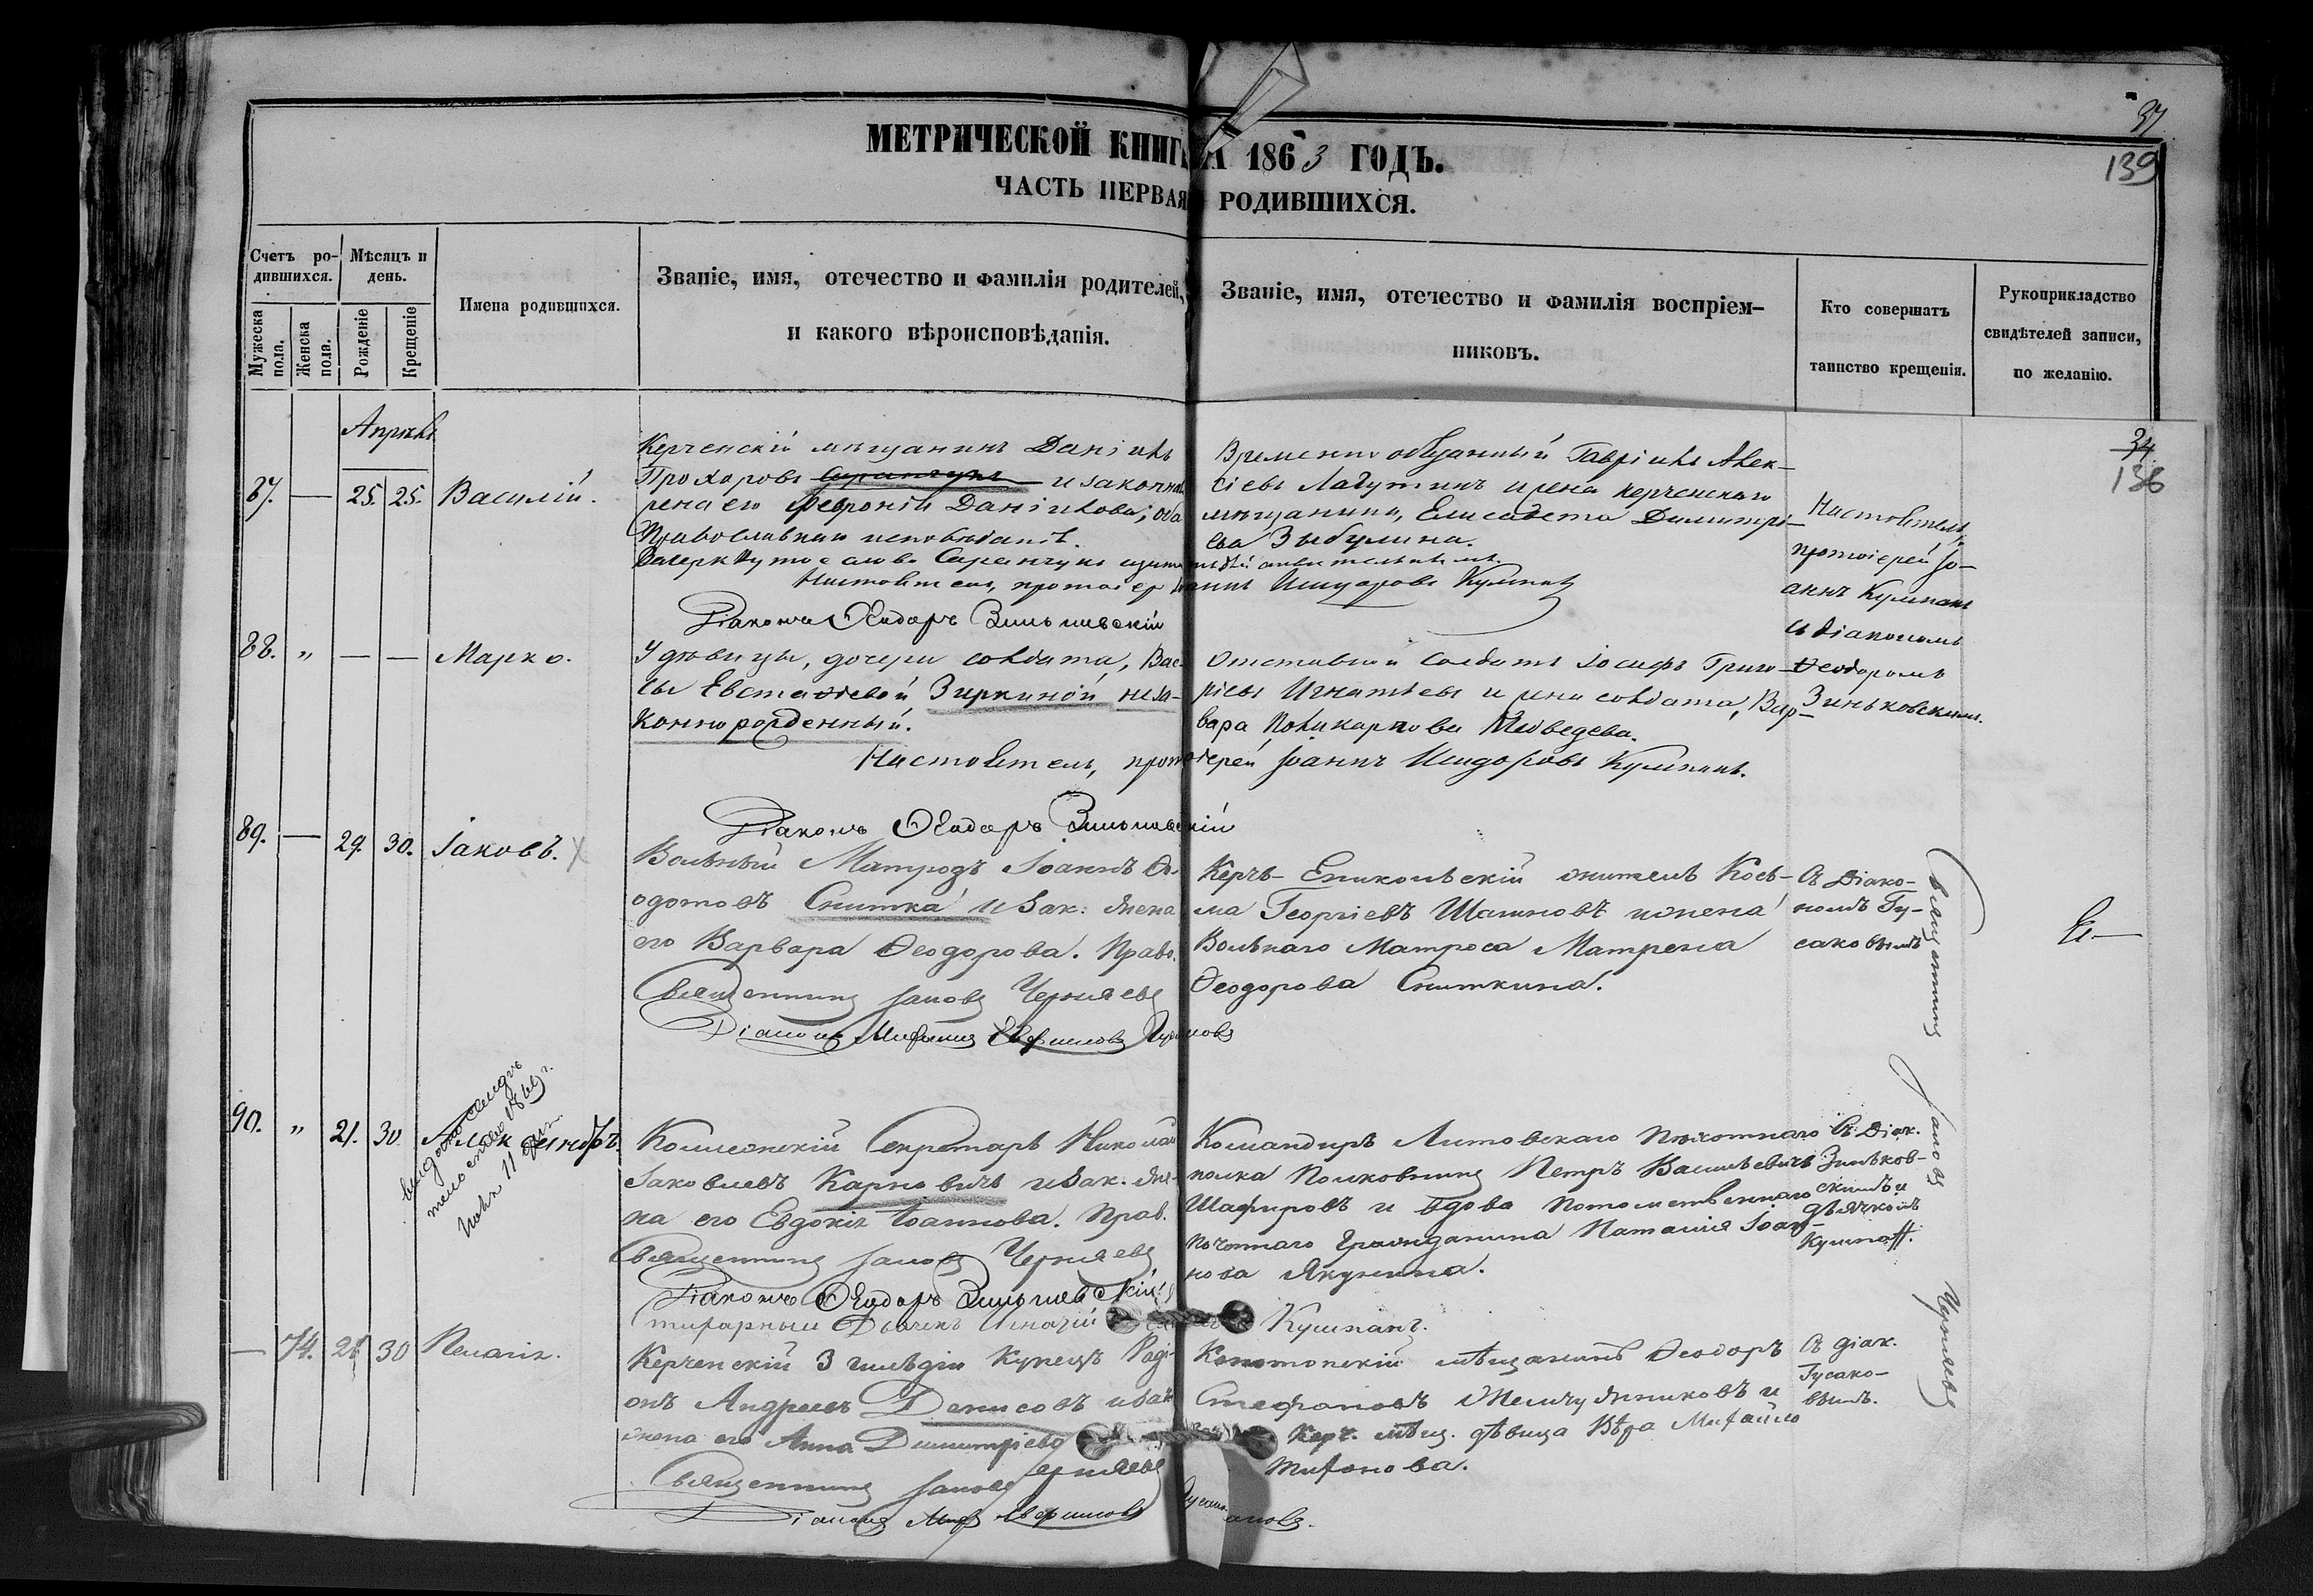 37
139
МЕТРИЧЕСКОЙ КНИГ
А 1863 ГОДЪ.
ЧАСТЬ ПЕРВАЯ
РОДИВШИХСЯ.
Счетъ ро-
дившихся.
Мужеска пола.
Женска пола.
Мѣсяцъ и
день.
Рожденіе
Крещеніе
Имена родившихся.
Званіе, имя, отечество и фамилія родителей,
и какого вѣроисповѣданія.
Званіе, имя, отечество и фамилія воспріем-
никовъ.
Кто совершатъ
таинство крещенія.
Рукоприкладство
свидѣтелей записи,
по желанію.
34
136
Апрѣль
87. — 25. 25. Василій.
Керченскій мѣщанинъ Даніилъ
Прохоровъ и законная
жена его Февронія Даніилова, оба
Православнаго исповѣданія.
Зачеркнутое слово Саранчукъ
Настоятель, протоіерей Іоаннъ Исидоровъ Кумпанъ
Діаконъ Ѳеодоръ Зиньковскій
Временно обязанный Гавріилъ Алек-
сіевъ Лазутинъ и жена керченскаго
мѣщанина, Елисавета Димитрі-
ева Зыбулина.
Настоятель,
протоіерей Іо-
аннъ Кумпанъ
съ діакономъ
Ѳеодоромъ
Зиньковскимъ.
88. „ — — Марко.
У дѣвицы, дочери солдата, Вас-
сы Евстафіевой Зиркиной неза-
коннорожденный.
Отставной солдатъ Іосифъ Григо-
ріевъ Игнатьевъ и жена солдата, Вар-
вара Поликарпова Медведева.
Настоятель, протоіерей Іоаннъ Исидоровъ Кумпанъ.
Діаконъ Ѳеодоръ Зиньковскій
89. — 29. 30. Іаковъ.
Вольный Матрозъ Іоаннъ Ѳе-
одотовъ Снитка и зак: жена
его Варвара Ѳеодорова. Правс.
Священникъ Іаковъ Черняевъ
Керчь-Еникольскій житель Косъ-
ма Георгіевъ Шаиновъ и жена
Вольнаго Матроса Матрена
Ѳеодорова Сниткина.
Съ Діако-
номъ Гу-
саковымъ
Священникъ Іаковъ Черняевъ
90. „ 21. 30. Александръ.
Коллежскій Секретарь Николай
Іаковлевъ Карповичъ и зак. же-
на его Евдокія Іоаннова. Прав.
Священникъ Іаковъ Черняевъ
Діаконъ Ѳеодоръ Зиньковскій
Командиръ Литовскаго пѣхотнаго
полка Полковникъ Петръ Васильевичъ
Шафировъ и вдова потомственнаго
почотнаго гражданина Наталія Іоан-
нова Якунина.
Кумпанъ.
Съ Діак.
Зиньков-
скимъ и
дьячкомъ
— 74. 21 30 Пелагія.
Керченскій 3 гильдіи Купецъ Роді-
онъ Андреевъ Денисовъ и зак
жена его Анна Димитріева
Священникъ Іаковъ Черняевъ
Конотопскій мѣщанинъ Ѳеодоръ
Стефановъ Желчужниковъ и
Керч. мѣщ. дѣвица Вѣра Михайло
Тихонова.
Съ діак.
Гусако-
вымъ.